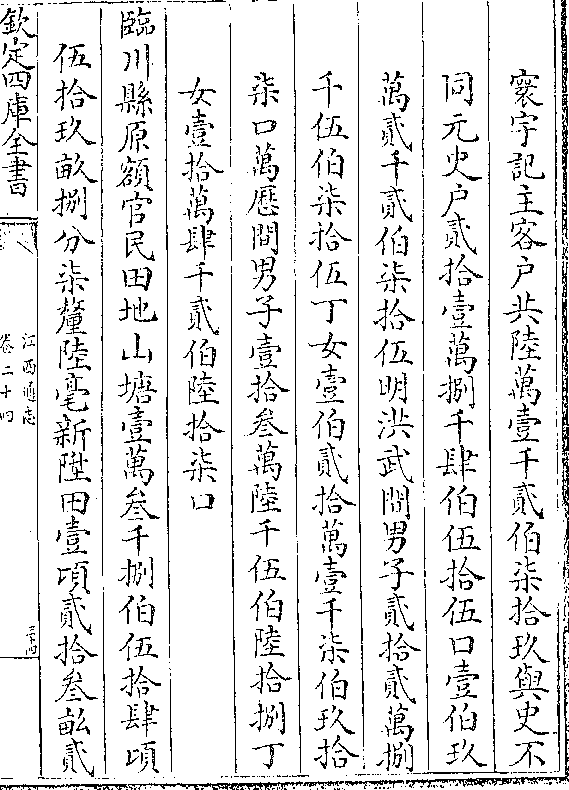 寰宇記主客户共陸萬壹千貳伯柒拾玖與史不
同元史户貳拾壹萬捌千肆伯伍拾伍口壹伯玖
萬貳千貳伯柒拾伍明洪武間男子貳拾貳萬捌
千伍伯柒拾伍丁女壹伯貳拾萬壹千柒伯玖拾
柒口萬歷間男子壹拾叁萬陸千伍伯陸拾捌丁
女壹拾萬肆千貳伯陸拾柒口
臨川縣原額官民田地山塘壹萬叁千捌伯伍拾肆頃
伍拾玖畝捌分柒釐陸毫新陞田壹頃貳拾叁畝貳
欽定四庫全書
江西通志
卷二十四
三十四